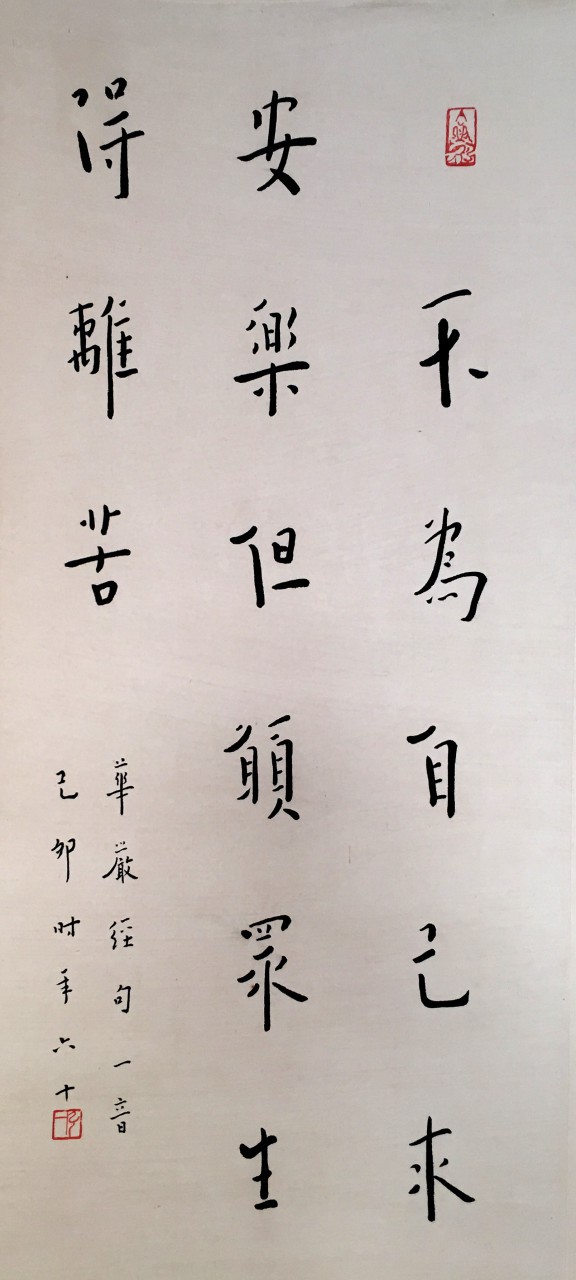 不為自己求
安樂但願眾生
得離苦
華嚴經句一音
己卯時年六十